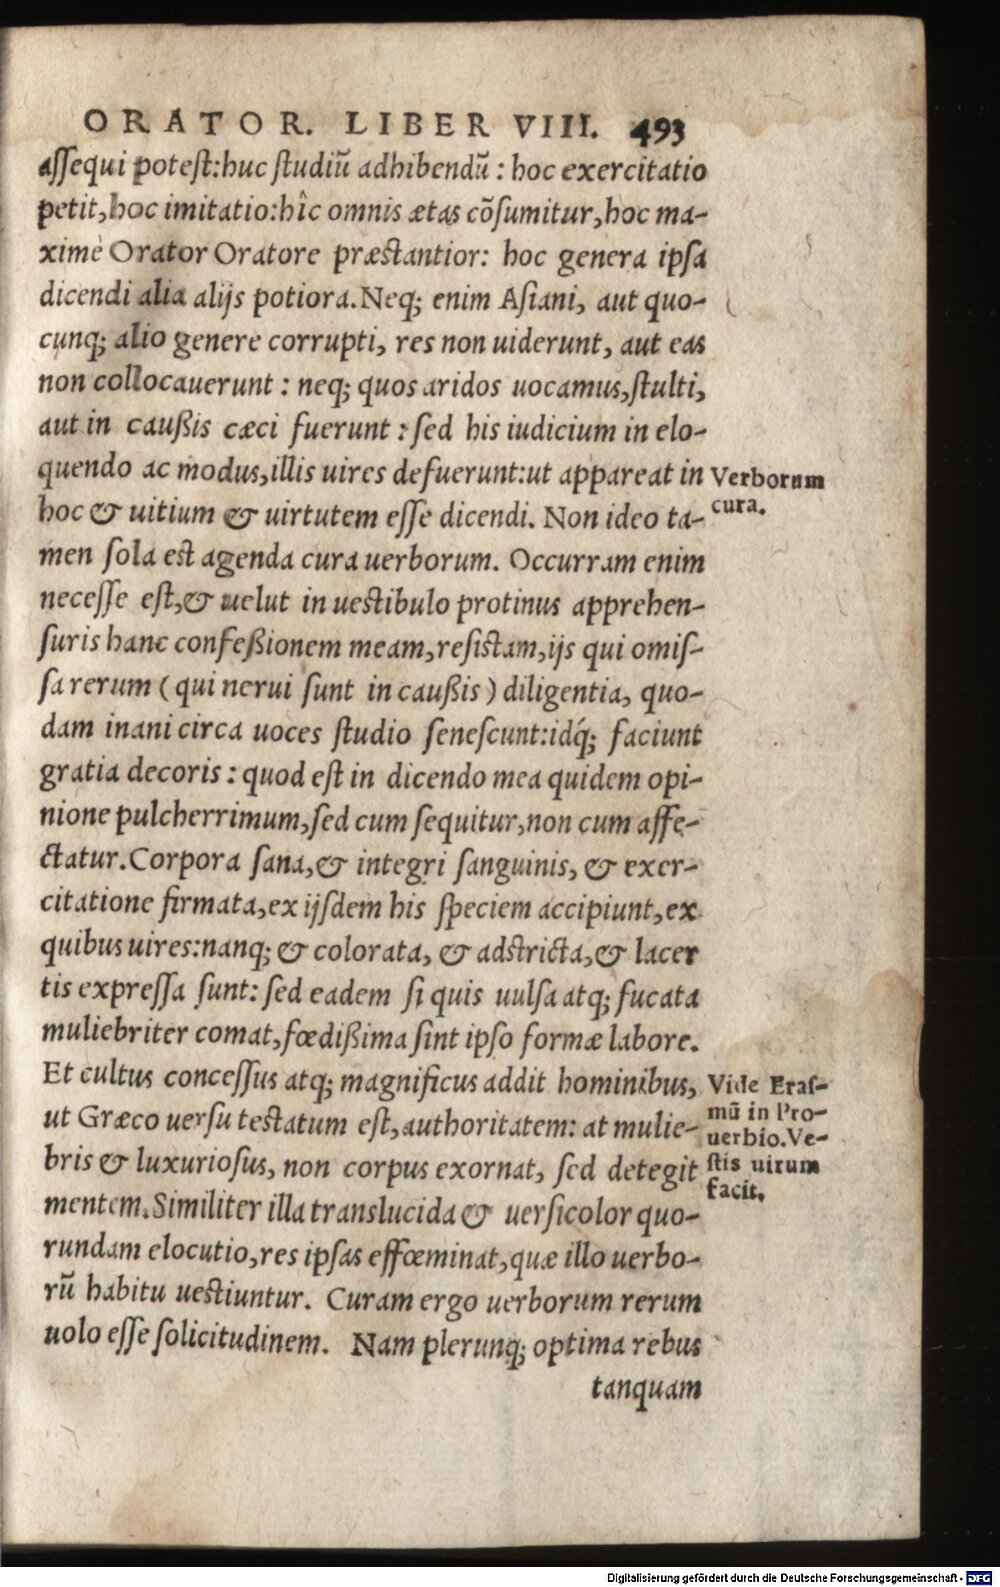 ORATOR. LIBER VIII. 493
assequi potest: huc studiũ adhibendũ: hoc exercitatio
petit, hoc imitatio: hîc omnis ætas cõsumitur, hoc ma-
ximè Orator Oratore præstantior: hoc genera ipsa
dicendi alia alijs potiora. Neq; enim Asiani, aut quo-
cunq; alio genere corrupti, res non uiderunt, aut eas
non collocauerunt: neq; quos aridos uocamus, stulti,
aut in caußis cæci fuerunt: sed his iudicium in elo-
quendo ac modus, illis uires defuerunt: ut appareat in
hoc & uitium & uirtutem esse dicendi. Non ideo ta-
men sola est agenda cura uerborum. Occurram enim
necesse est, & uelut in uestibulo protinus apprehen-
suris hanc confeßionem meam, resistam, ijs qui omis-
sa rerum (qui nerui sunt in caußis) diligentia, quo-
dam inani circa uoces studio senescunt: idq́; faciunt
gratia decoris: quod est in dicendo mea quidem opi-
nione pulcherrimum, sed cum sequitur, non cum affe-
ctatur. Corpora sana, & integri sanguinis, & exer-
citatione firmata, ex ijsdem his speciem accipiunt, ex
quibus uires: nanq; & colorata, & adstricta, & lacer
tis expressa sunt: sed eadem si quis uulsa atq; fucata
muliebriter comat, fœdißima sint ipso formæ labore.
Et cultus concessus atq; magnificus addit hominibus,
ut Græco uersu testatum est, authoritatem: at mulie-
bris & luxuriosus, non corpus exornat, sed detegit
mentem. Similiter illa translucida & uersicolor quo-
rundam elocutio, res ipsas effœminat, quæ illo uerbo-
rũ habitu uestiuntur. Curam ergo uerborum rerum
uolo esse solicitudinem. Nam plerunq; optima rebus
tanquam
Verborum
cura.
Vide Eras-
mũ in Pro-
uerbio. Ve-
stis uirum
facit.
Digitalisierung gefördert durch die Deutsche Forschungsgemeinschaft - DFG